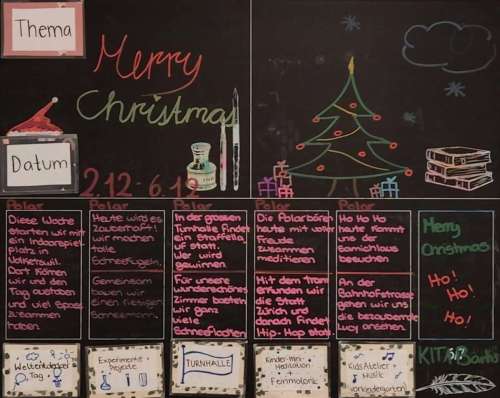 Thema
Merry
Christmas
Datum
2.12 - 6.12
Polar
Polar
Polar
Polar
Polar
Diese Woche
starten wir mit
ein Indoorspiel-
platz in
Volketswil.
Dort können
wir und den
Tag austoben
und viel Spass
zusammen
haben.
Heute wird es
zauberhaft!
wir machen
tolle
Schneekugeln.
Gemeinsam
bauen wir
einen riesigen
Schneemann.
In der grossen
Turnhalle findet
ein Staffella
uf statt.
Wer wird
gewinnen
Für unsere
wunderschönes
Zimmer basteln
wir ganz
viele
Schneeflocken
Die Polarbären
heute mit voller
Freude
zusammen
meditieren
Mit dem Tram
erkunden wir
die Stadt
Zürich und
danach findet
Hip-Hop statt.
Ho Ho Ho
heute kommt
uns der
Samichlaus
besuchen
An der
Bahnhofstrasse
gehen wir uns
die bezaubernde
Lucy ansehen.
Merry
Christmas
Ho!
Ho!
Ho!
Weltentdecker
Tag
Experimente
Projekte
TURNHALLE
Kinder-Mini-
Meditation
+
Feinmotorik
Kids Atelier +
Musik
Vorkindergarten
KITA